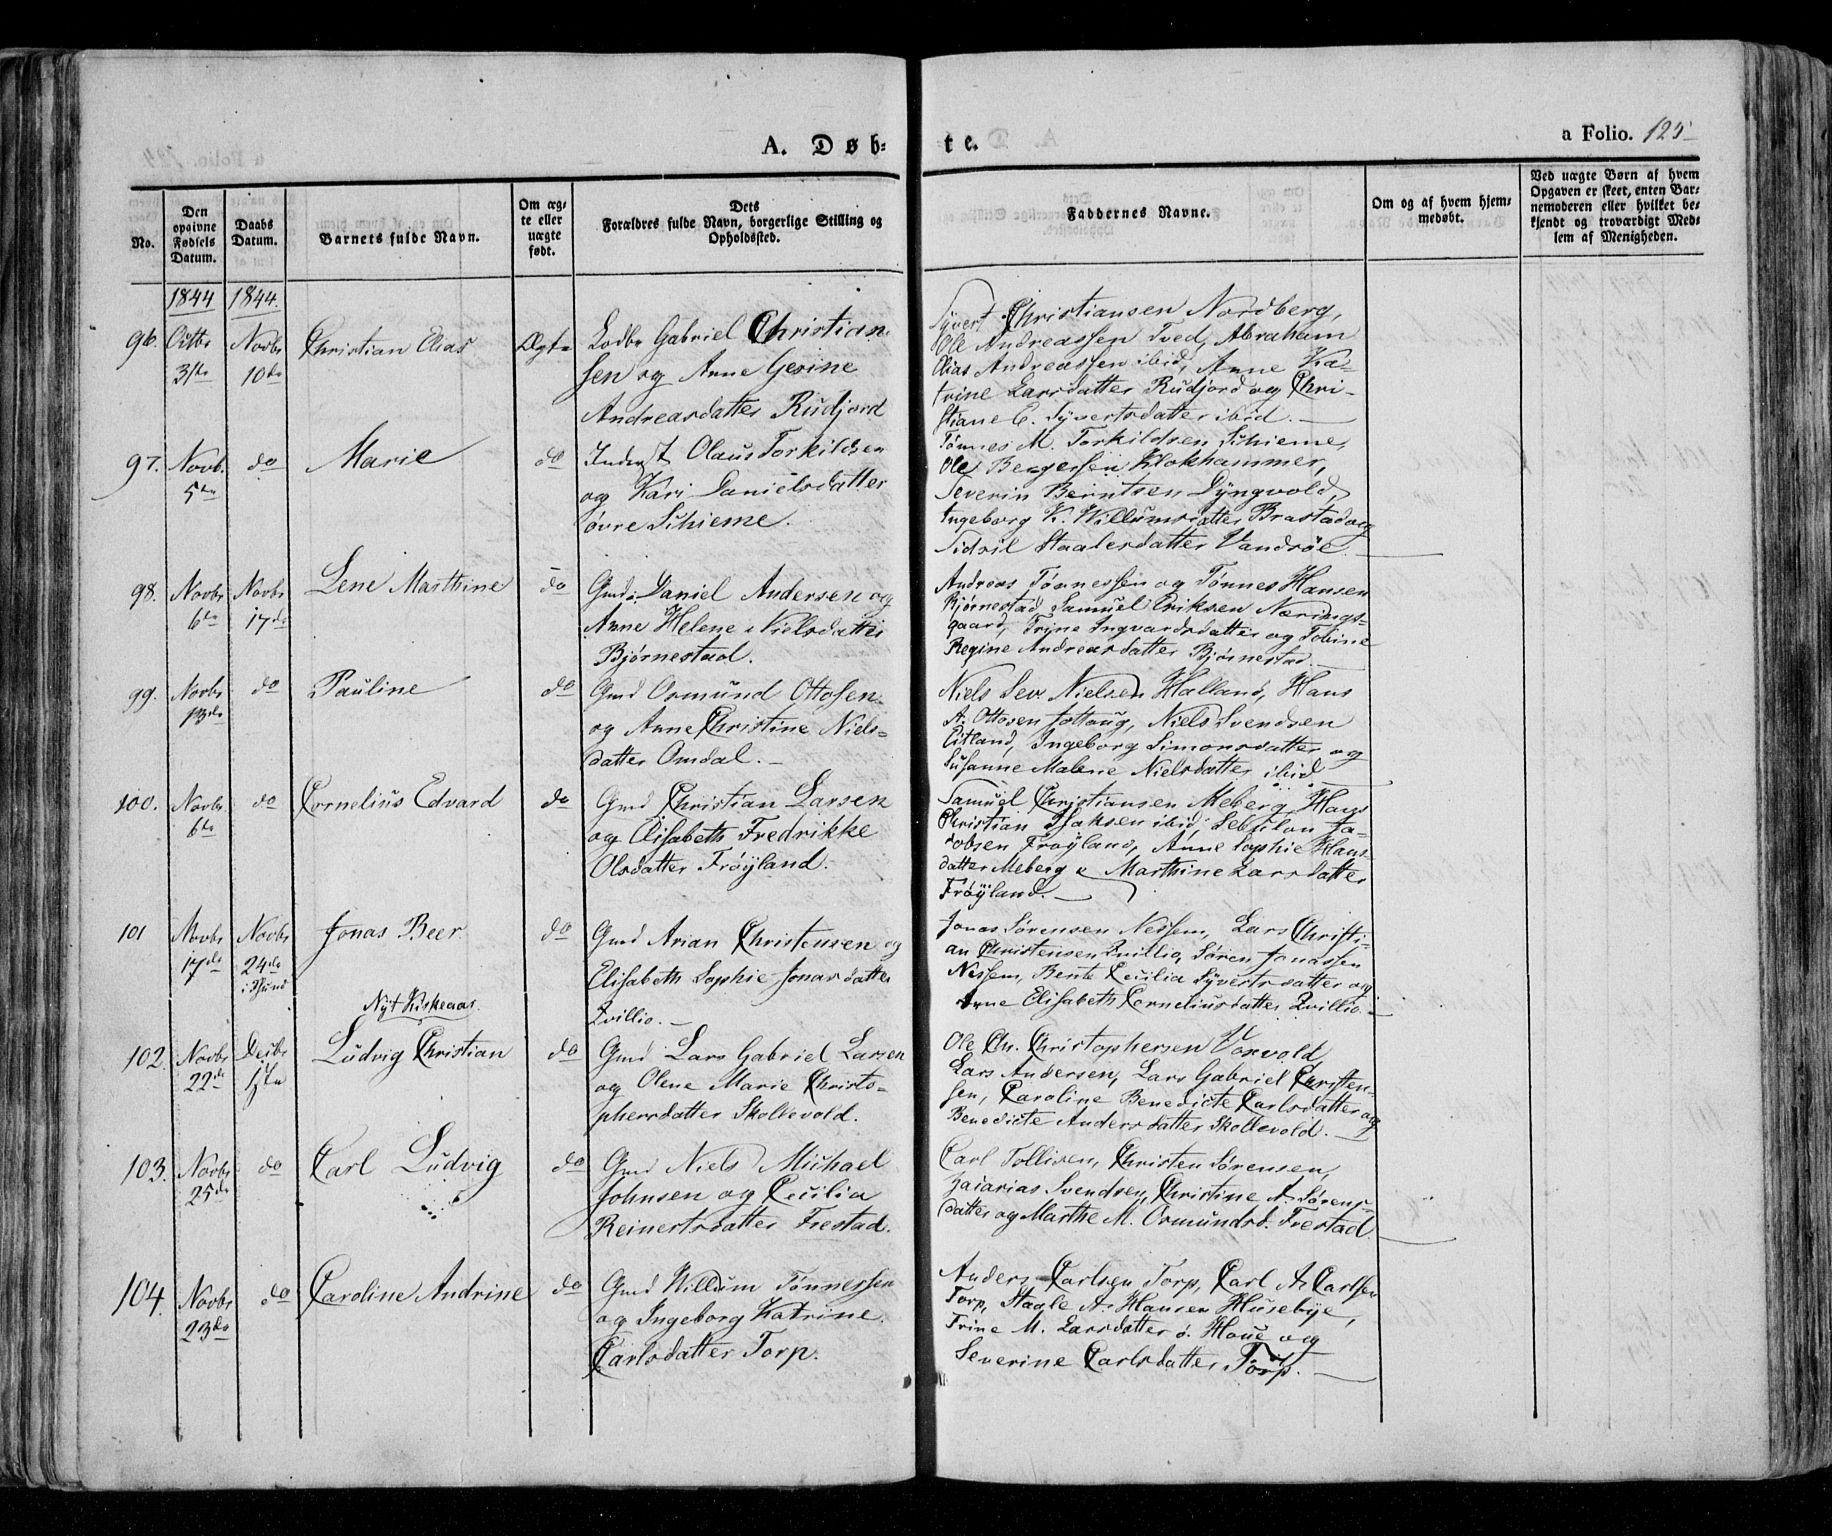 A. Døb-
te.
a Folio. 125
No.
Den
opgivne
Fødsels
Datum.
Daabs
Datum.
Barnets fulde Navn.
Om æg-
te eller
uægte
født.
Dets
Forældres fulde Navn, borgerlige Stilling og
Opholdssted.
Faddernes Navne.
Om og af hvem hjem-
medøbt.
Ved uægte Børn af hvem
Opgaven er skeet, enten Bar-
nemoderen eller hvilket be-
kjendt og troværdigt Med-
lem af Menigheden.
1844
1844.
96.
Octbr
31te
Novbr
10de
Christian Elias
Ægte
Lods Gabriel Christian
sen og Anne Gesine
Andreasdatter Rudjord
Syvert Christiansen Nordberg,
Ole Andreassen Tved, Abraham
Elias Andreassen ibid, Anne Ka-
trine Larsdatter Rudjord og Chri-
stiane C. Syvertsdatter ibid.
97.
Novb.
5te
do
Marie
do
Inderst Olaus Torkildsen
og Kari Danielsdatter
øvre Schieme.
Tønnes M. Torkildsen Schieme,
Ole Bergersen Klokhammer,
Severin Berntsen Dyngvold,
Ingeborg K. Willumsdatter Brastad og
Sidsil Staalesdatter Vandsøe
98.
Novbr
6te
Novbr
17de
Lene Marthine
do
Gmd. Daniel Andersen og
Anne Helene Nielsdatter
Bjørnestad.
Andreas Tønnessen og Tønnes Hansen
Bjørnestad, Samuel Eriksen Nærings-
gaard, Trine Ingvardsdatter og Tobine
Regine Andreasdatter Bjørnestad.
99.
Novbr
13de
do
Pauline
do
Gmd Ormund Ottosen
og Anne Christine Niels-
datter Omdal.
Niels Sev. Nielsen Halland, Hans
A. Ottosen Jøttaug, Niels Svendsen
Eitland, Ingeborg Simonsdatter og
Susanne Malene Nielsdatter ibid
100.
Novbr
6te
do
Cornelius Edvard
do
Gmd Christian Larsen
og Elisabeth Fredrikke
Olsdatter Frøyland.
Samuel Christiansen Meberg, Hans
Christian Isaksen ibid, Sebulon Ja-
cobsen Frøyland, Anne Sophie Hans-
datter Meberg & Marthine Larsdatter
Frøyland.
101
Novbr
17de
Novbr
24de
i Hund
Jonas Beer
do
Gmd Arian Christensen og
Elisabeth Sophie Jonasdatter
Qvillio.
Jonas Sørensen Nessem, Lars Christi-
an Christensen Qvillio, Søren Jonassen
Nessem, Bente Cecilia Syvertsdatter og
Arne Elisabeth Corneliusdatter Qvillio.
Nyt Kirkeaar.
102.
Novbr
22de
Decbr
1ste
Ludvig Christian
do
Gmd Lars Gabriel Larsen
og Olene Marie Christo-
phersdatter Skollevold.
Ole Chr. Christophersen Vorvold,
Lars Andersen, Lars Gabriel Christen-
sen, Caroline Benedicte Carlsdatter og
Benedicte Andersdatter Skollevold.
103.
Novbr
25de
do
Carl Ludvig
do
Gmd Niels Michael
Johnsen og Cecilia
Reinertsdatter Frestad.
Carl Tollisen, Christen Sørensen,
Zacarias Svendsen, Christine A. Sørens-
datter og Marthe M. Ormundsd. Frestad
104.
Novbr
23de
do
Caroline Andrine
do
Gmd Willum Tønnessen
og Ingeborg Katrine
Carlsdatter Torp.
Anders Carlsen Torp, Carl A. Carlsen
Torp, Staale A. Hansen Husebye,
Trine M. Larsdatter ø. Houe og
Severine Carlsdatter Torp.